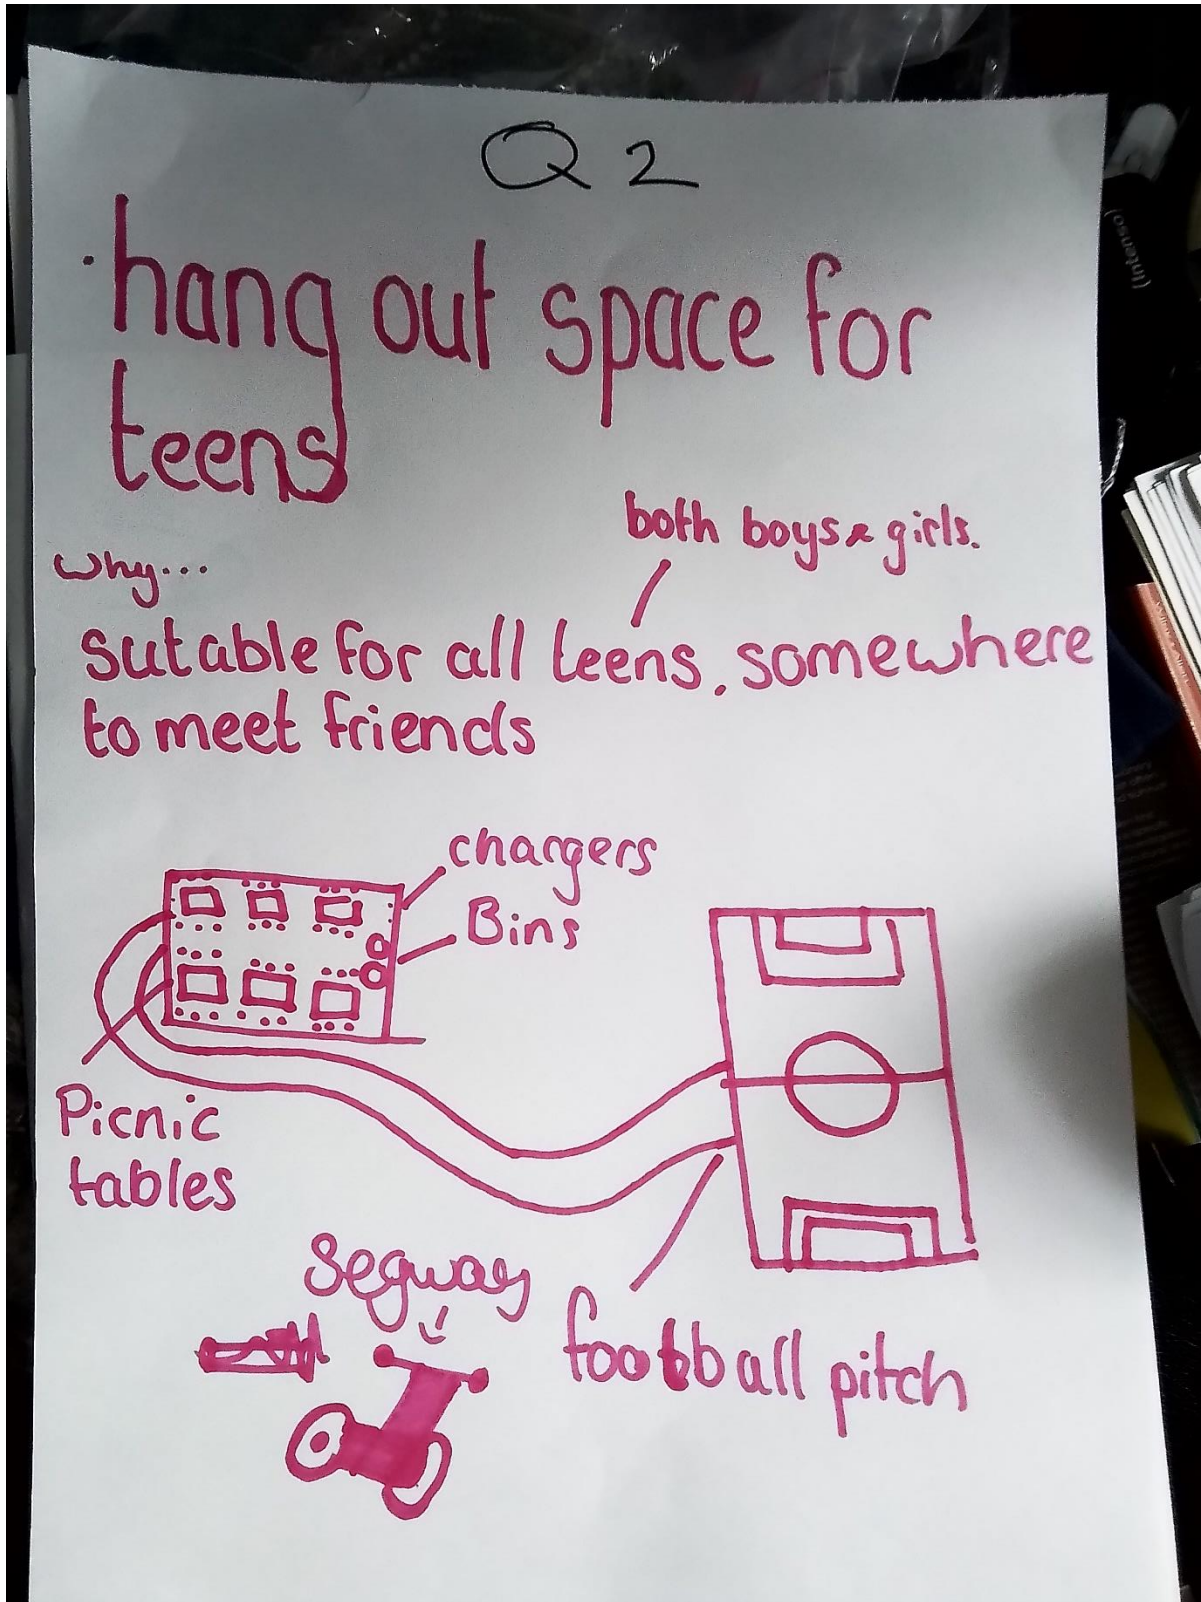 Q2
·hang out space for
teens
both boys & girls.
why...
sutable for all teens. somewhere
to meet friends
chargers
Bins
Picnic
tables
segway
football pitch
(Intenso)